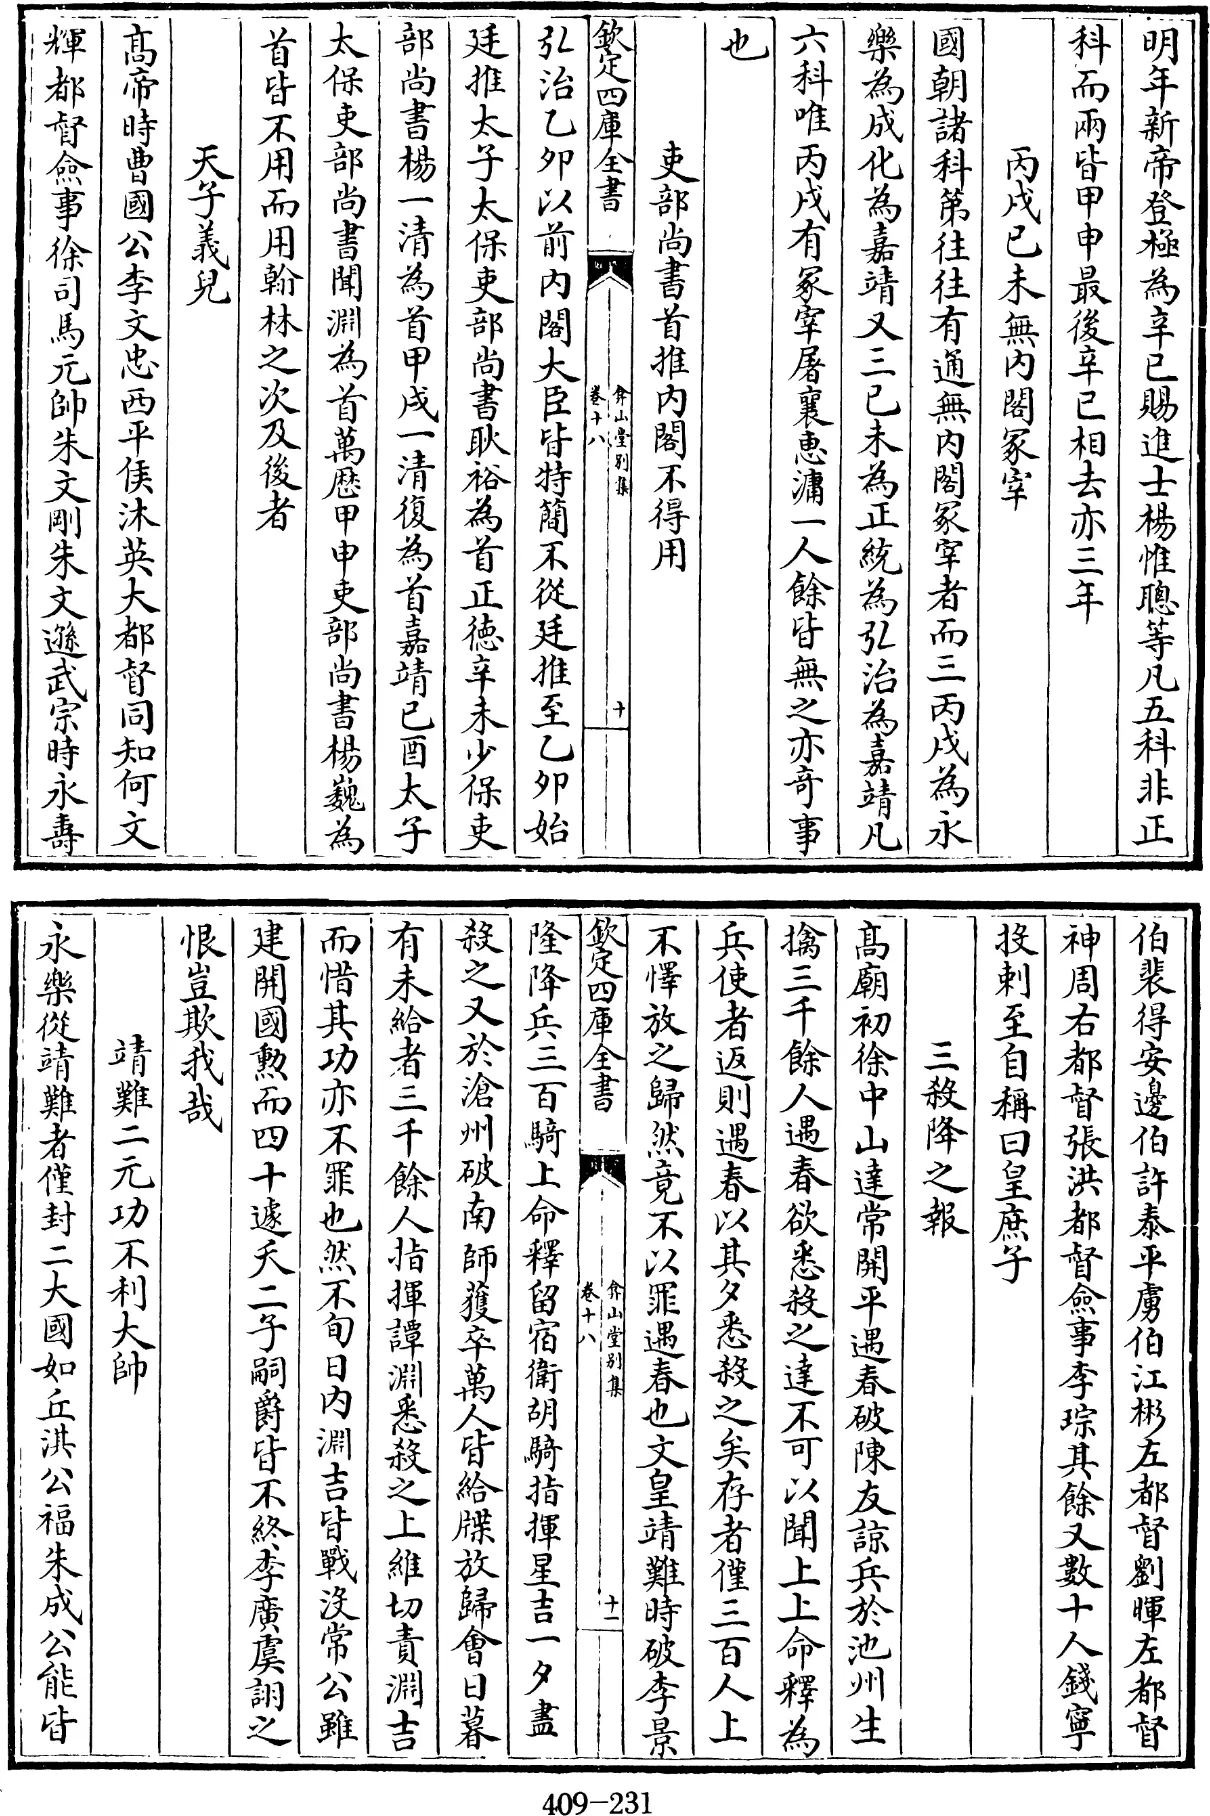 明年新帝登極為辛巳賜進士楊惟聰等凡五科非正
科而兩皆甲申最後辛巳相去亦三年
丙戌已未無内閣冢宰
國朝諸科第往往有通無内閣冢宰者而三丙戌為永
樂為成化為嘉靖又三已未為正統為弘治為嘉靖凡
六科唯丙戌有冢宰屠襄惠滽一人餘皆無之亦竒事
也
吏部尚書首推内閣不得用
欽定四庫全書
弇山堂别集
卷十八
十
弘治乙卯以前内閣大臣皆特簡不從廷推至乙卯始
廷推太子太保吏部尚書耿裕為首正徳辛未少保吏
部尚書楊一清為首甲戌一清復為首嘉靖已酉太子
太保吏部尚書聞淵為首萬厯甲申吏部尚書楊巍為
首皆不用而用翰林之次及後者
天子義兒
髙帝時曹國公李文忠西平侯沐英大都督同知何文
輝都督僉事徐司馬元帥朱文剛朱文遜武宗時永壽
伯裴得安邊伯許泰平虜伯江彬左都督劉暉左都督
神周右都督張洪都督僉事李琮其餘又數十人錢寧
投刺至自稱曰皇庶子
三殺降之報
髙廟初徐中山達常開平遇春破陳友諒兵於池州生
擒三千餘人遇春欲悉殺之達不可以聞上上命釋為
兵使者返則遇春以其夕悉殺之矣存者僅三百人上
不懌放之歸然竟不以罪遇春也文皇靖難時破李景
欽定四庫全書
弇山堂别集
卷十八
十一
隆降兵三百騎上命釋留宿衛胡騎指揮星吉一夕盡
殺之又於滄州破南師獲卒萬人皆給牒放歸會日暮
有未給者三千餘人指揮譚淵悉殺之上雖切責淵吉
而惜其功亦不罪也然不旬日内淵吉皆戰没常公雖
建開國勲而四十遽夭二子嗣爵皆不終李廣虞詡之
恨豈欺我哉
靖難二元功不利大帥
永樂從靖難者僅封二大國如丘淇公福朱成公能皆
409-231